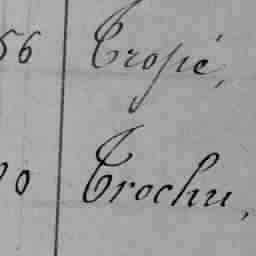 56 Tropié,
90 Trochu,